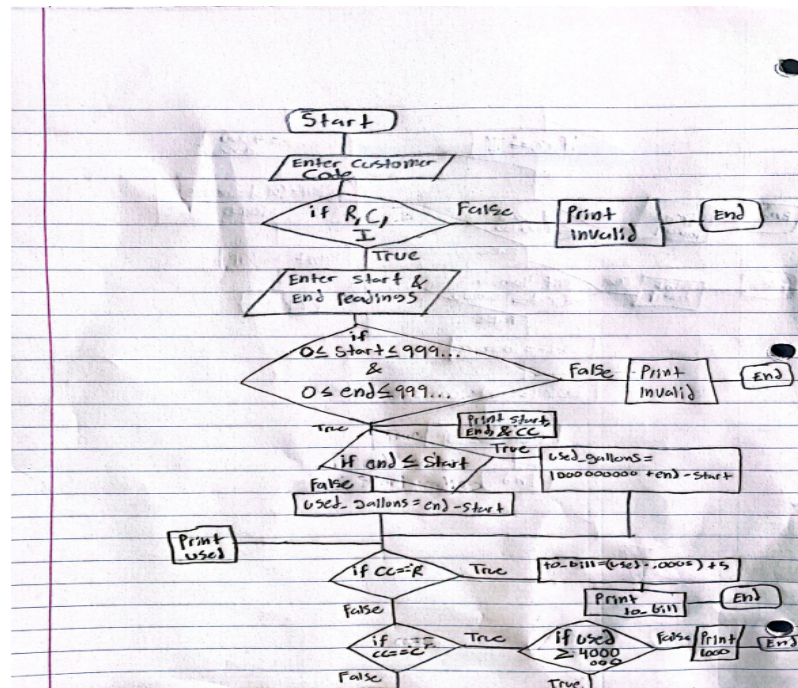 Start
Enter Customer
Code
if R, C,
I
False
Print
invalid
End
True
Enter start &
End readings
if
0 ≤ start ≤ 999...
&
0 ≤ end ≤ 999...
False
Print
invalid
End
True
Print start,
End, & CC
if end ≤ start
True
used_gallons =
1000000000 + end - start
False
used_gallons = end - start
Print
used
if CC == R
True
Print
to_bill
End
False
if
True
if used
≥ 4000
000
False
Print
1000
End
False
True